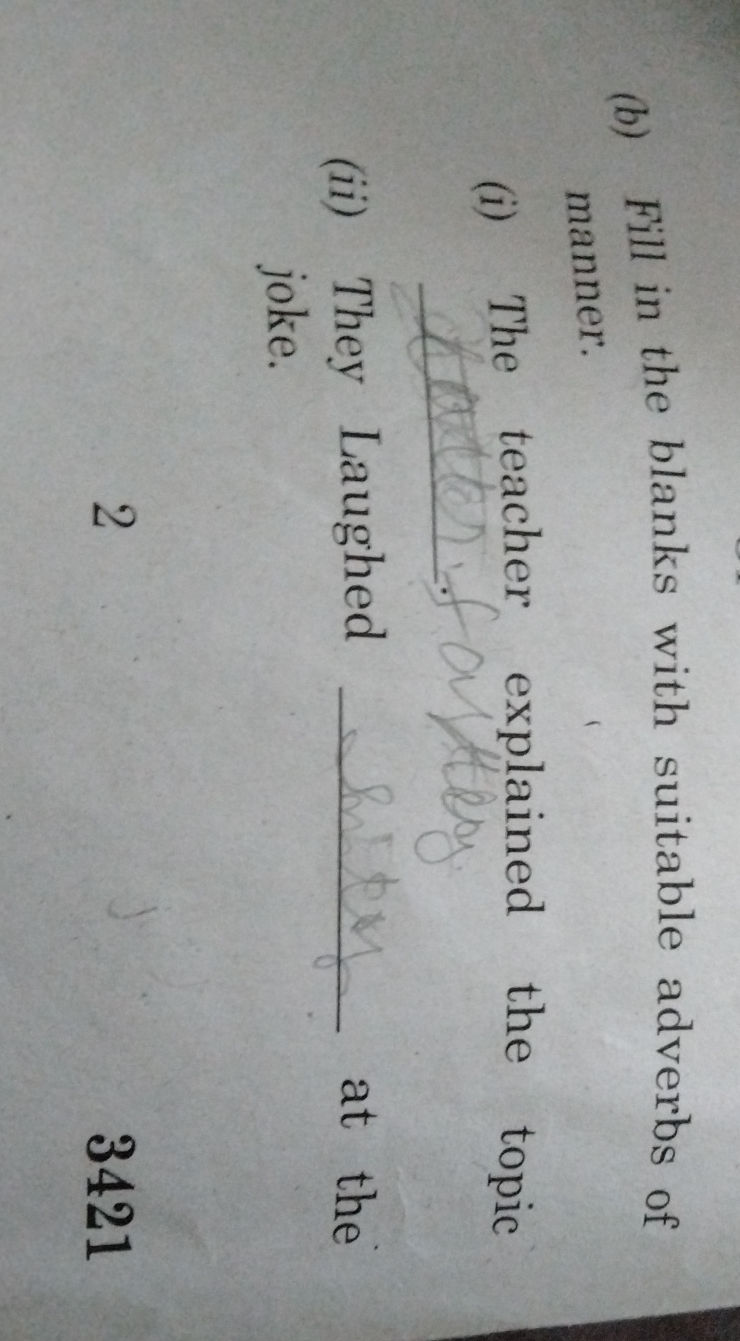 (b) Fill in the blanks with suitable adverbs of
manner.
(i) The teacher explained the topic
.
(ii) They Laughed at the
joke.
2 3421